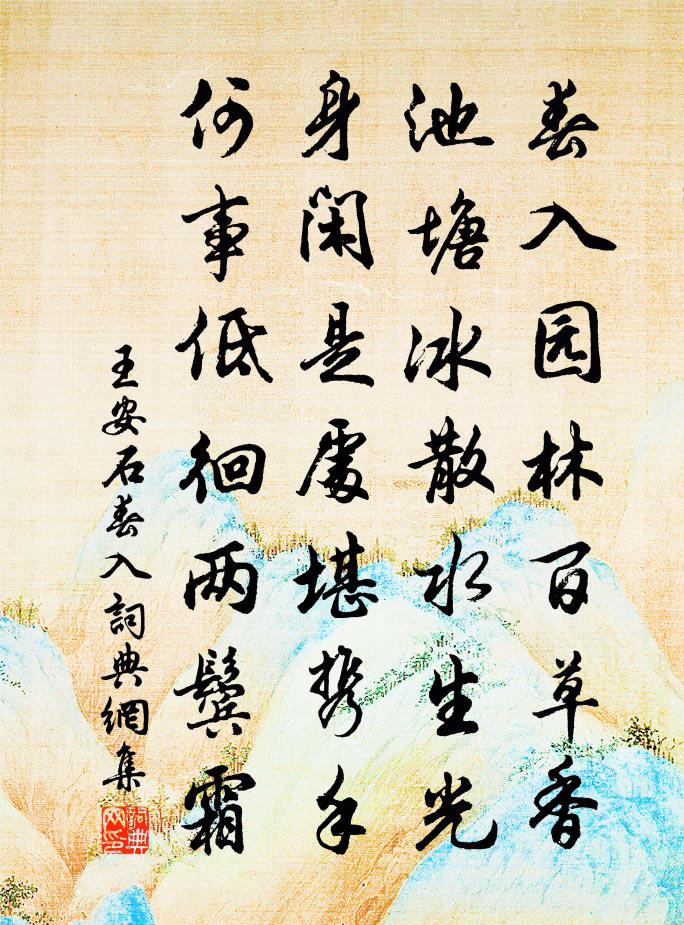 春入园林百草香
池塘冰散水生光
身闲是處堪携手
何事低徊两鬓霜
王安石春入詞典網集
詞典网印